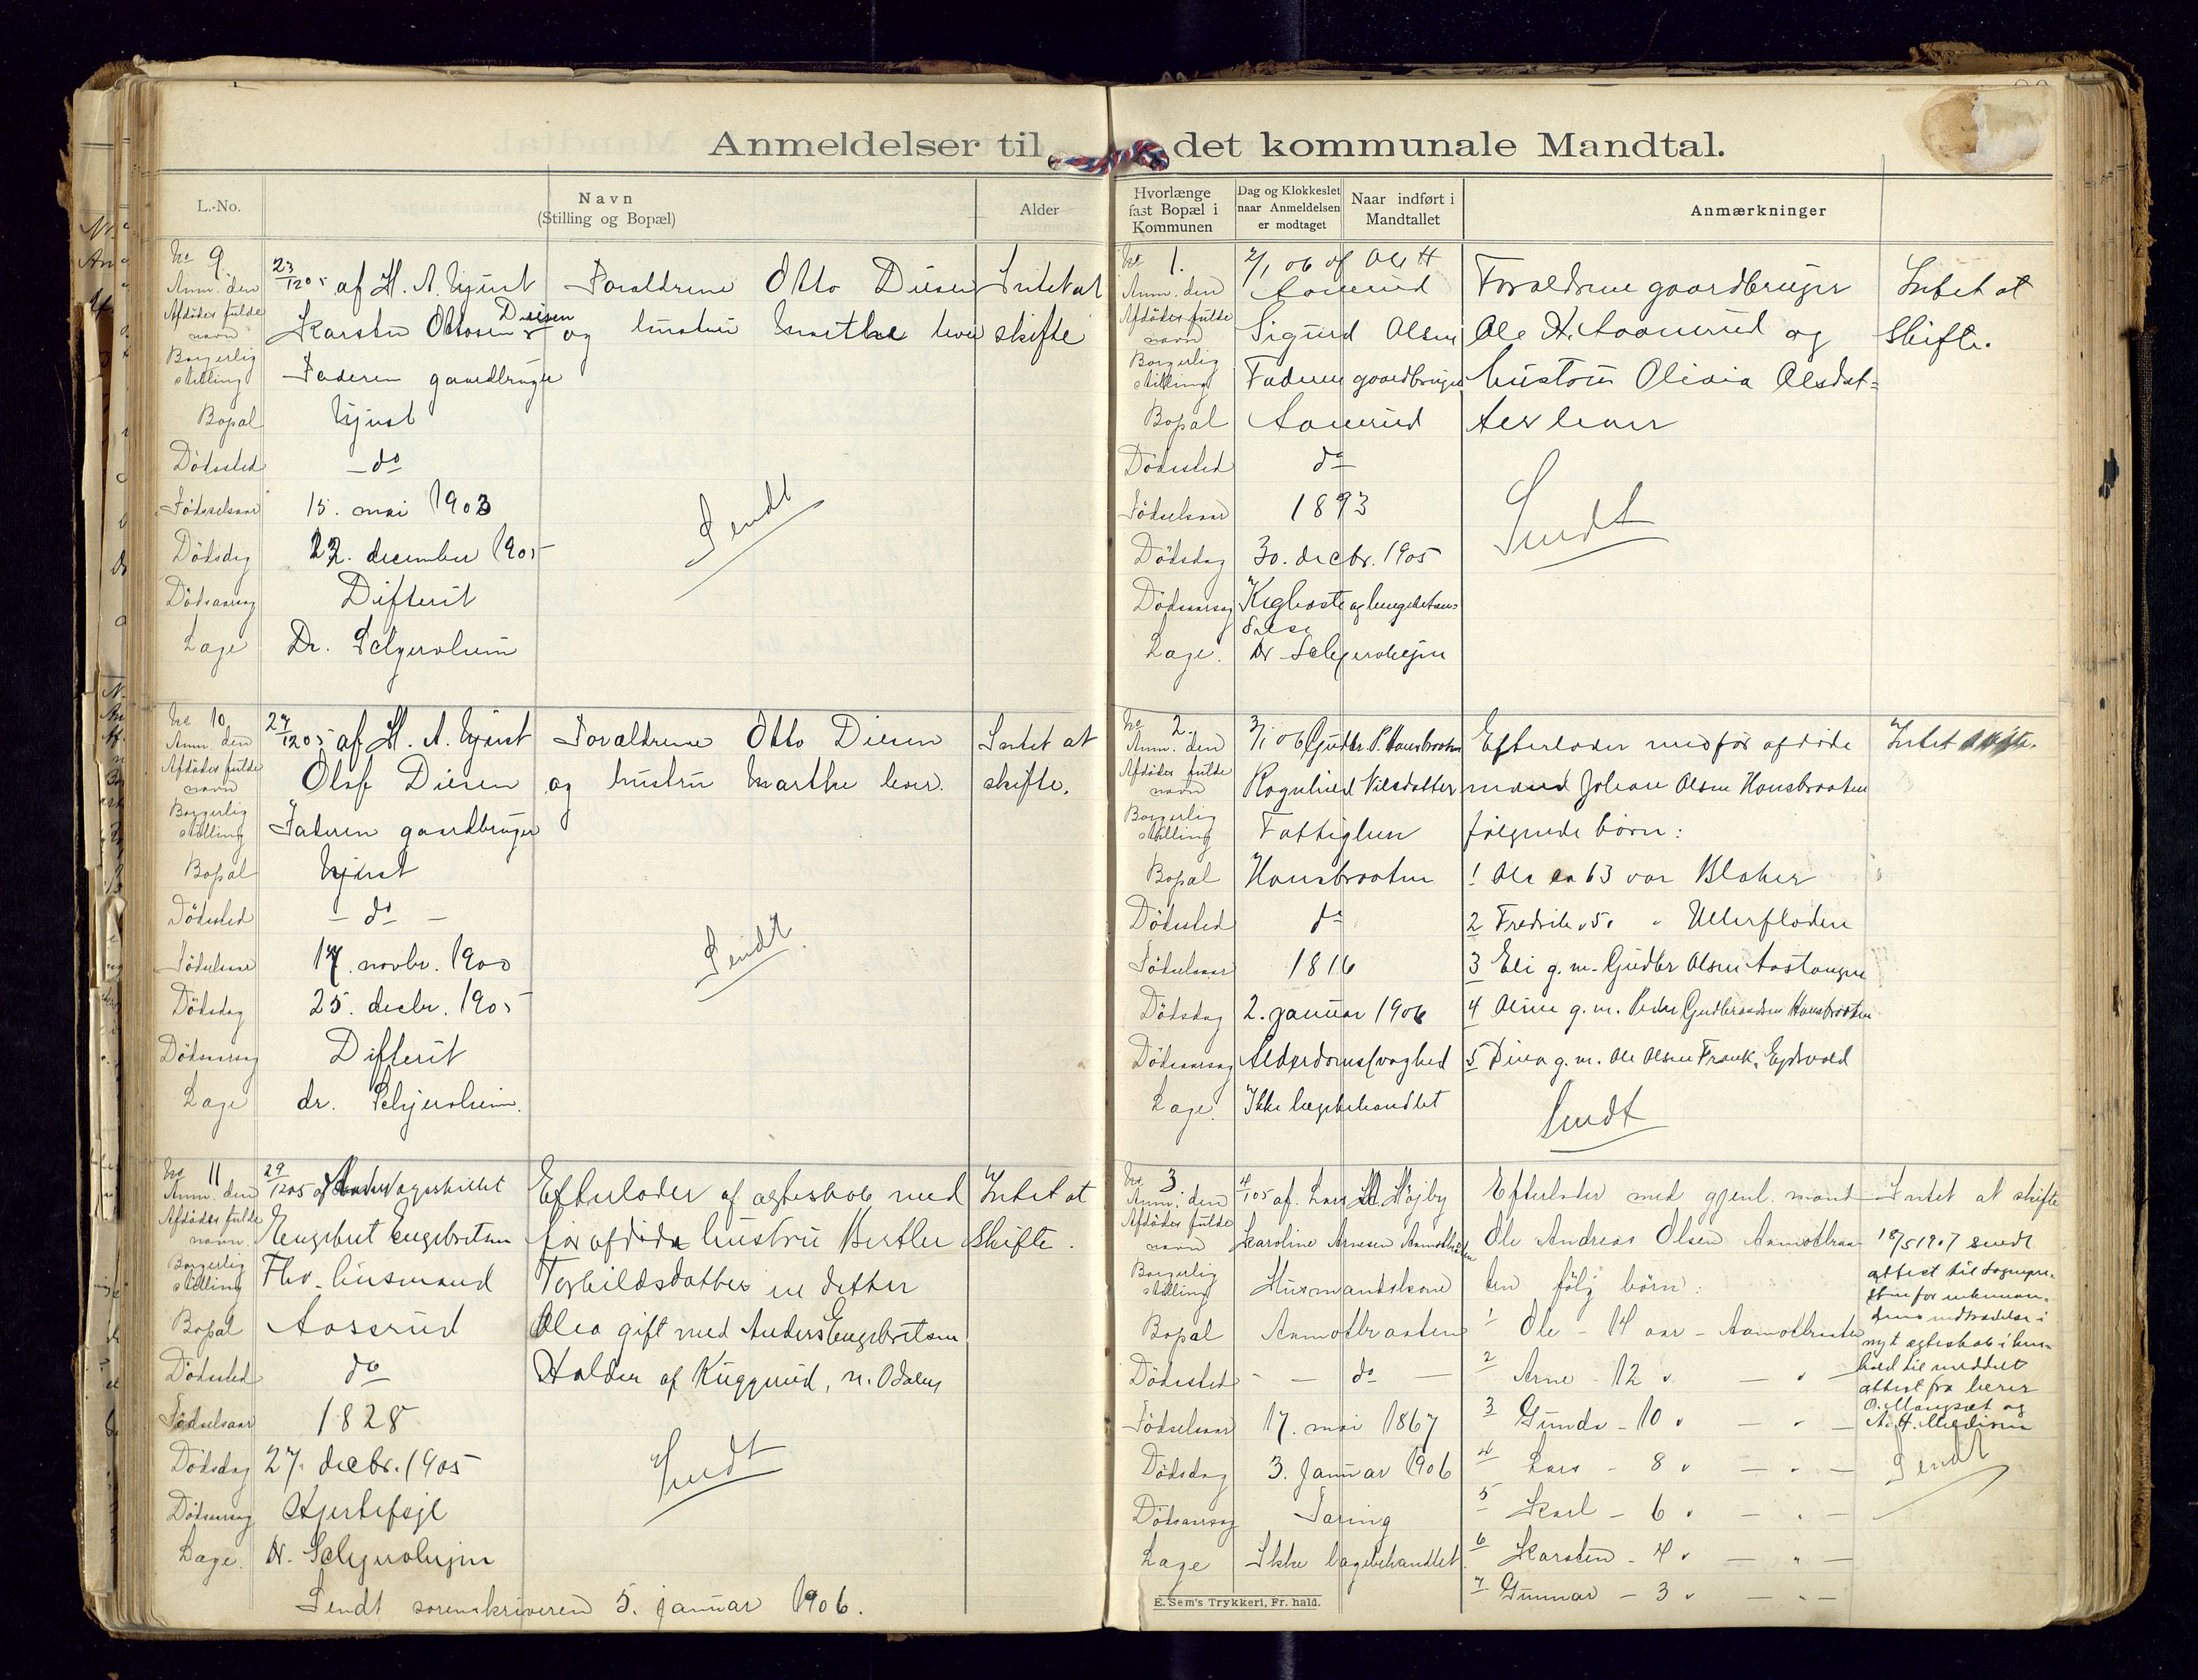 Anmeldelser til det kommunale Mandtal.
L.-No.
Navn
(Stilling og Bopæl)
Alder
No 9
Anm. den 23/12 05 af H. A.
Afdødes fulde navn Karsten Ottosen Diesen
Borgerlig stilling Faderen gaardbruger
Bopæl
Dödssted - do
Födselsaar 15. mai 1903
Dödsdag 22. december 1905
Dödsaarsag Difterit
Læge Dr. Schjerolheim
Forældrene Otto Diesen
og hustru Marthe lever
Intet at
skifte
Sendt
No 10
Anm. den 27/12 05 af H. A.
Afdødes fulde navn Olaf Diesen
Borgerlig stilling Faderen gaardbruger
Bopæl
Dödssted - do -
Födselsaar 17. novbr. 1900
Dödsdag 25. decbr. 1905
Dödsaarsag Difterit
Læge dr. Schjerolheim.
Forældrene Otto Diesen
og hustru Marthe lever.
Intet at
skifte.
Sendt.
No 11
Anm. den 29/12 05 af
Afdødes fulde navn. Engebret Engebretsen
Borgerlig stilling Fhv. husmand
Bopæl Aaserud
Dödssted do
Födselsaar 1828
Dödsdag 27. decbr. 1905
Dödsaarsag Hjertefejl
Læge. Dr. Schjerolhejm
Efterlader af ægteskab med
før afdøde hustru Berthe
Torkildsdatter en datter
Olea gift med Anders Engebretsen
Holder af Kuggerud, n. Odalen
Intet at
skifte.
Sendt
Sendt sorenskriveren 5. januar 1906.
Hvorlænge
fast Bopæl i
Kommunen
Dag og Klokkeslet
naar Anmeldelsen
er modtaget
Naar indført i
Mandtallet
Anmærkninger
No 1.
Anm. den 2/1 06 af Ole H
Aamerud
Afdødes fulde navn Sigurd Olsen
Borgerlig stilling Faderen gaardbruger
Bopæl Aamerud
Dödssted do
Födselsaar 1893
Dödsdag 30. decbr. 1905
Dödsaarsag Kighoste og lungebetæn-
delse
Læge. Dr Schjerolhejm
Forældrene gaardbruger
Ole H. Aamerud og
hustru Olivia Olsdat-
ter lever
Intet at
skifte.
Sendt
No 2.
Anm. den 3/1 06 Gudbr. P. Hansbraaten
Afdødes fulde navn Ragnhild Nilsdatter
Borgerlig stilling Fattiglem
Bopæl Hansbraaten
Dödssted do
Födselsaar 1816
Dödsdag 2. januar 1906
Dödsaarsag Alderdomssvaghed
Læge Ikke lægebehandlet
Efterlader med før afdøde
mand Johan Olsen Hansbraaten
følgende børn:
1 Ole ca 63 aar Blaker
2 Fredrik " 50 " Ullerfloden
3 Eli g. m. Gudbr Olsen Aastangen
4 Oline g. m. Peder Gudbrandsen Hansbraaten
5 Dina g. m. Ole Olsen Frank, Ejdsvold
Intet skifte.
Sendt
No 3
Anm. den 4/1 05 af. Lars M. Højby
Afdødes fulde navn Karoline Arnesen Aamotbraaten
Borgerlig stilling Husmandskone
Bopæl Aamotbraaten
Dödssted - - do -
Födselsaar 17. mai 1867
Dödsdag 3. Januar 1906
Dödsaarsag Tæring
Læge Ikke lægebehandlet.
Efterlader med gjenl. mand
Ole Andreas Olsen Aamotbraa-
ten følg børn:
1 Ole - 14 aar - Aamotbraaten
2 Arne - 12 " - " -
3 Gunda - 10 " - " -
4 Lars - 8 " - " -
5 Karl - 6 " - " -
6 Karsten - 4 " - " -
7 Gunnar - 3 " - " -
Intet at skifte
18/5 1907 sendt
attest til sognepre-
sten for enkeman-
dens indtrædelse i
nyt ægteskab i hen-
hold til meddelt
attest fra
O. Mangset og
A. H.
Sendt
E. Sem's Trykkeri, Fr. hald.